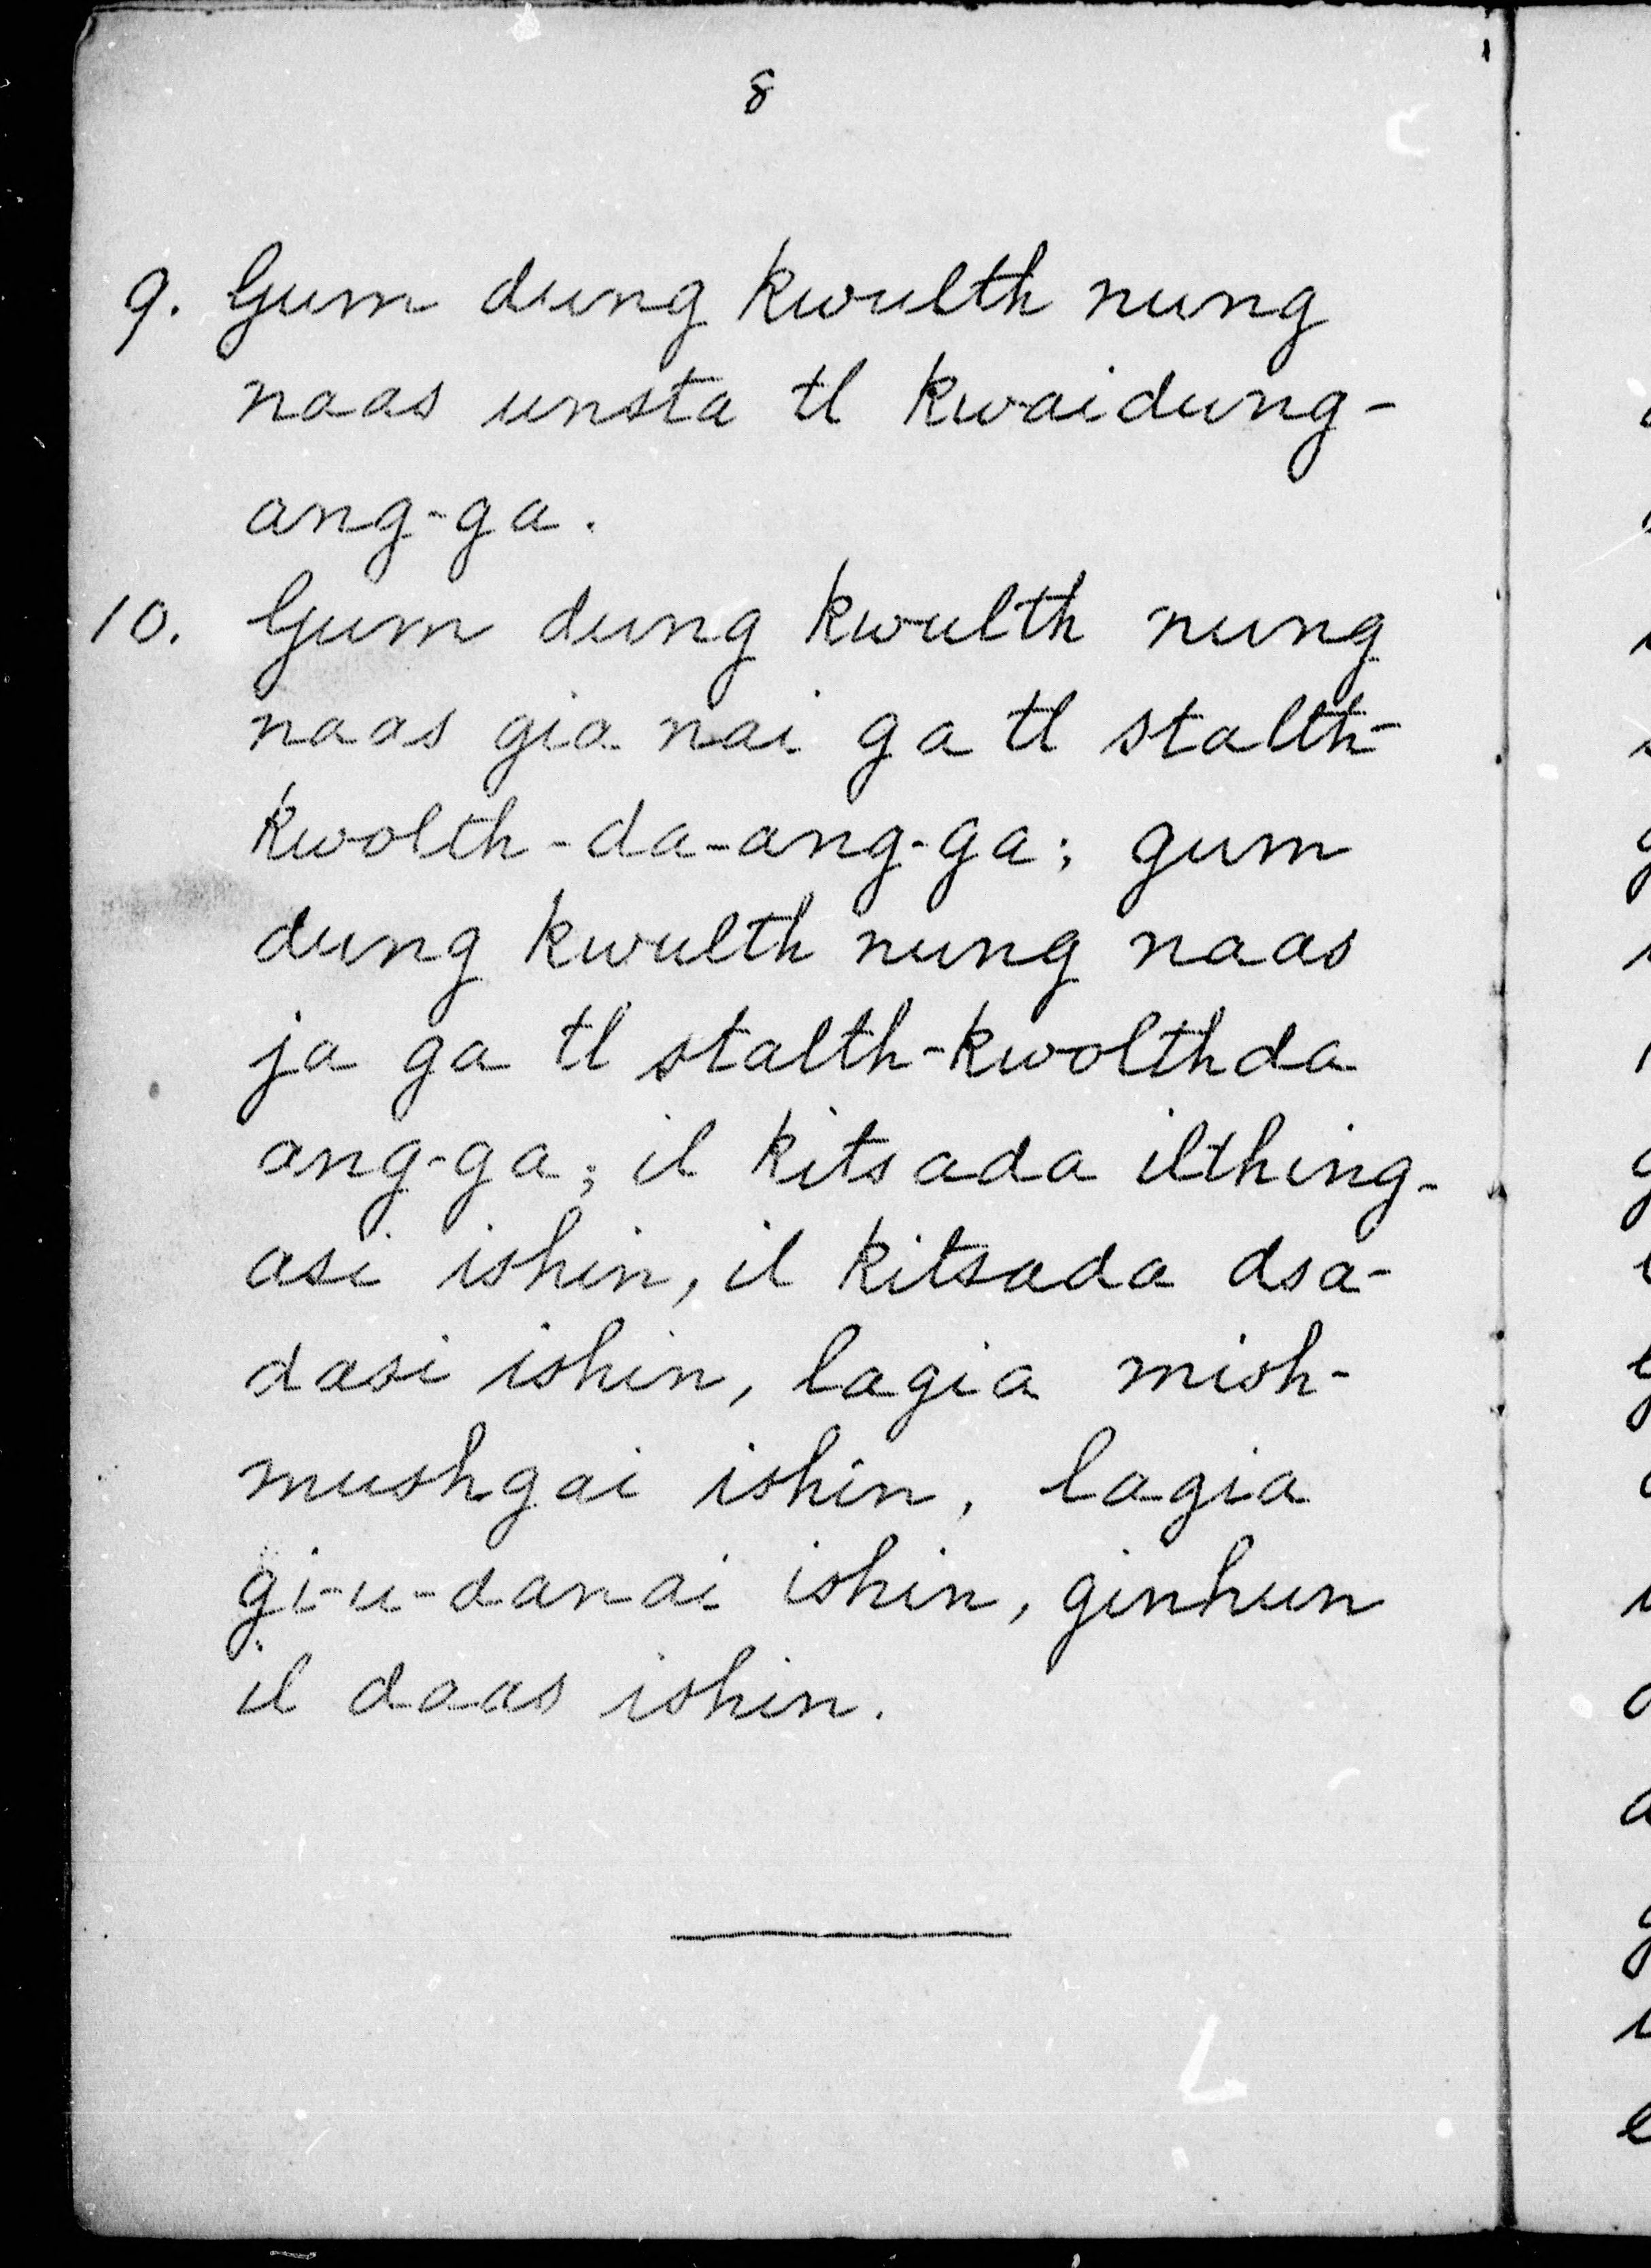 8
9. Gum dung kwulth nung
naas unsta tl kwaidung-
ang-ga.
10. Gum dung kwulth nung
naas gia nai ga tl stalth-
kwolth-da-ang-ga; gum
dung kwulth nung naas
ja ga tl stalth-kwolthda
ang-ga; il kitsada ilthing-
asi ishin, il kitsada dsa-
dasi ishin, lagia mish-
mushgai ishin, lagia
gi-u-danai ishin, ginhun
il daas ishin.